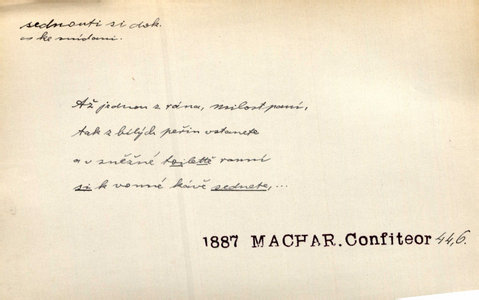 sednouti si dok.
as ke snídani.
Až jednou z rána, milost paní,
tak z bílých peřin vstanete
a v sněžné toilettě ranní
si k vonné kávě sednete,...
1887 MACHAR.Confiteor 44,6.